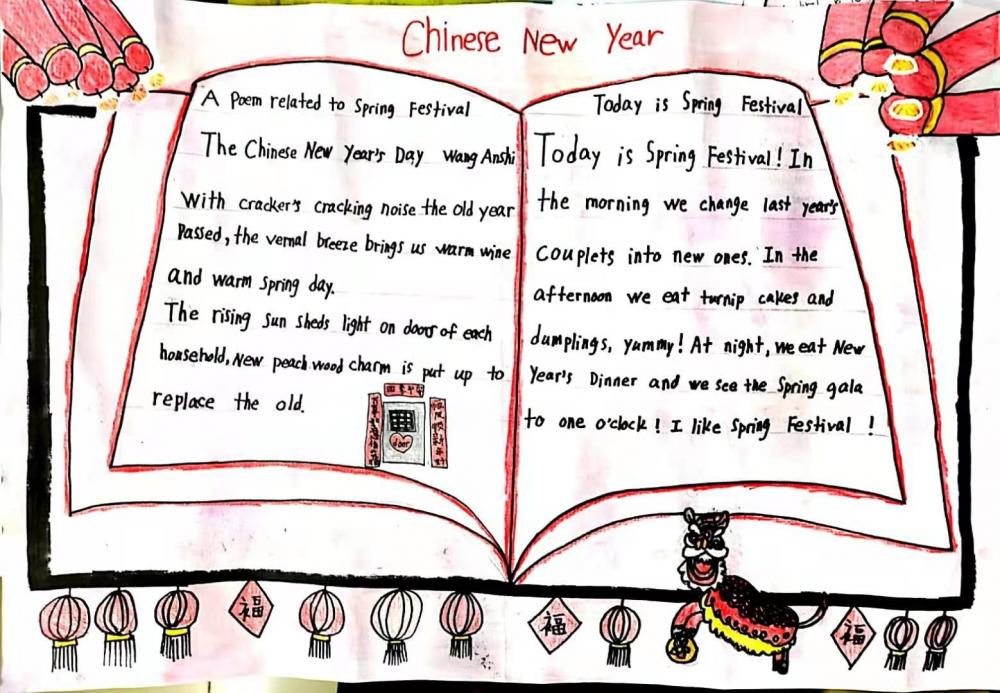 Chinese New Year
A Poem related to Spring Festival
The Chinese New Year's Day Wang Anshi
With cracker's cracking noise the old year
Passed, the vernal breeze brings us warm wine
and warm spring day.
The rising sun sheds light on doors of each
household, New peach wood charm is put up to
replace the old.
door
Today is Spring Festival
Today is Spring Festival! In
the morning we change last year's
couplets into new ones. In the
afternoon we eat turnip cakes and
dumplings, yummy! At night, we eat New
Year's Dinner and we see the Spring gala
to one o'clock! I like Spring Festival!
福
福
福